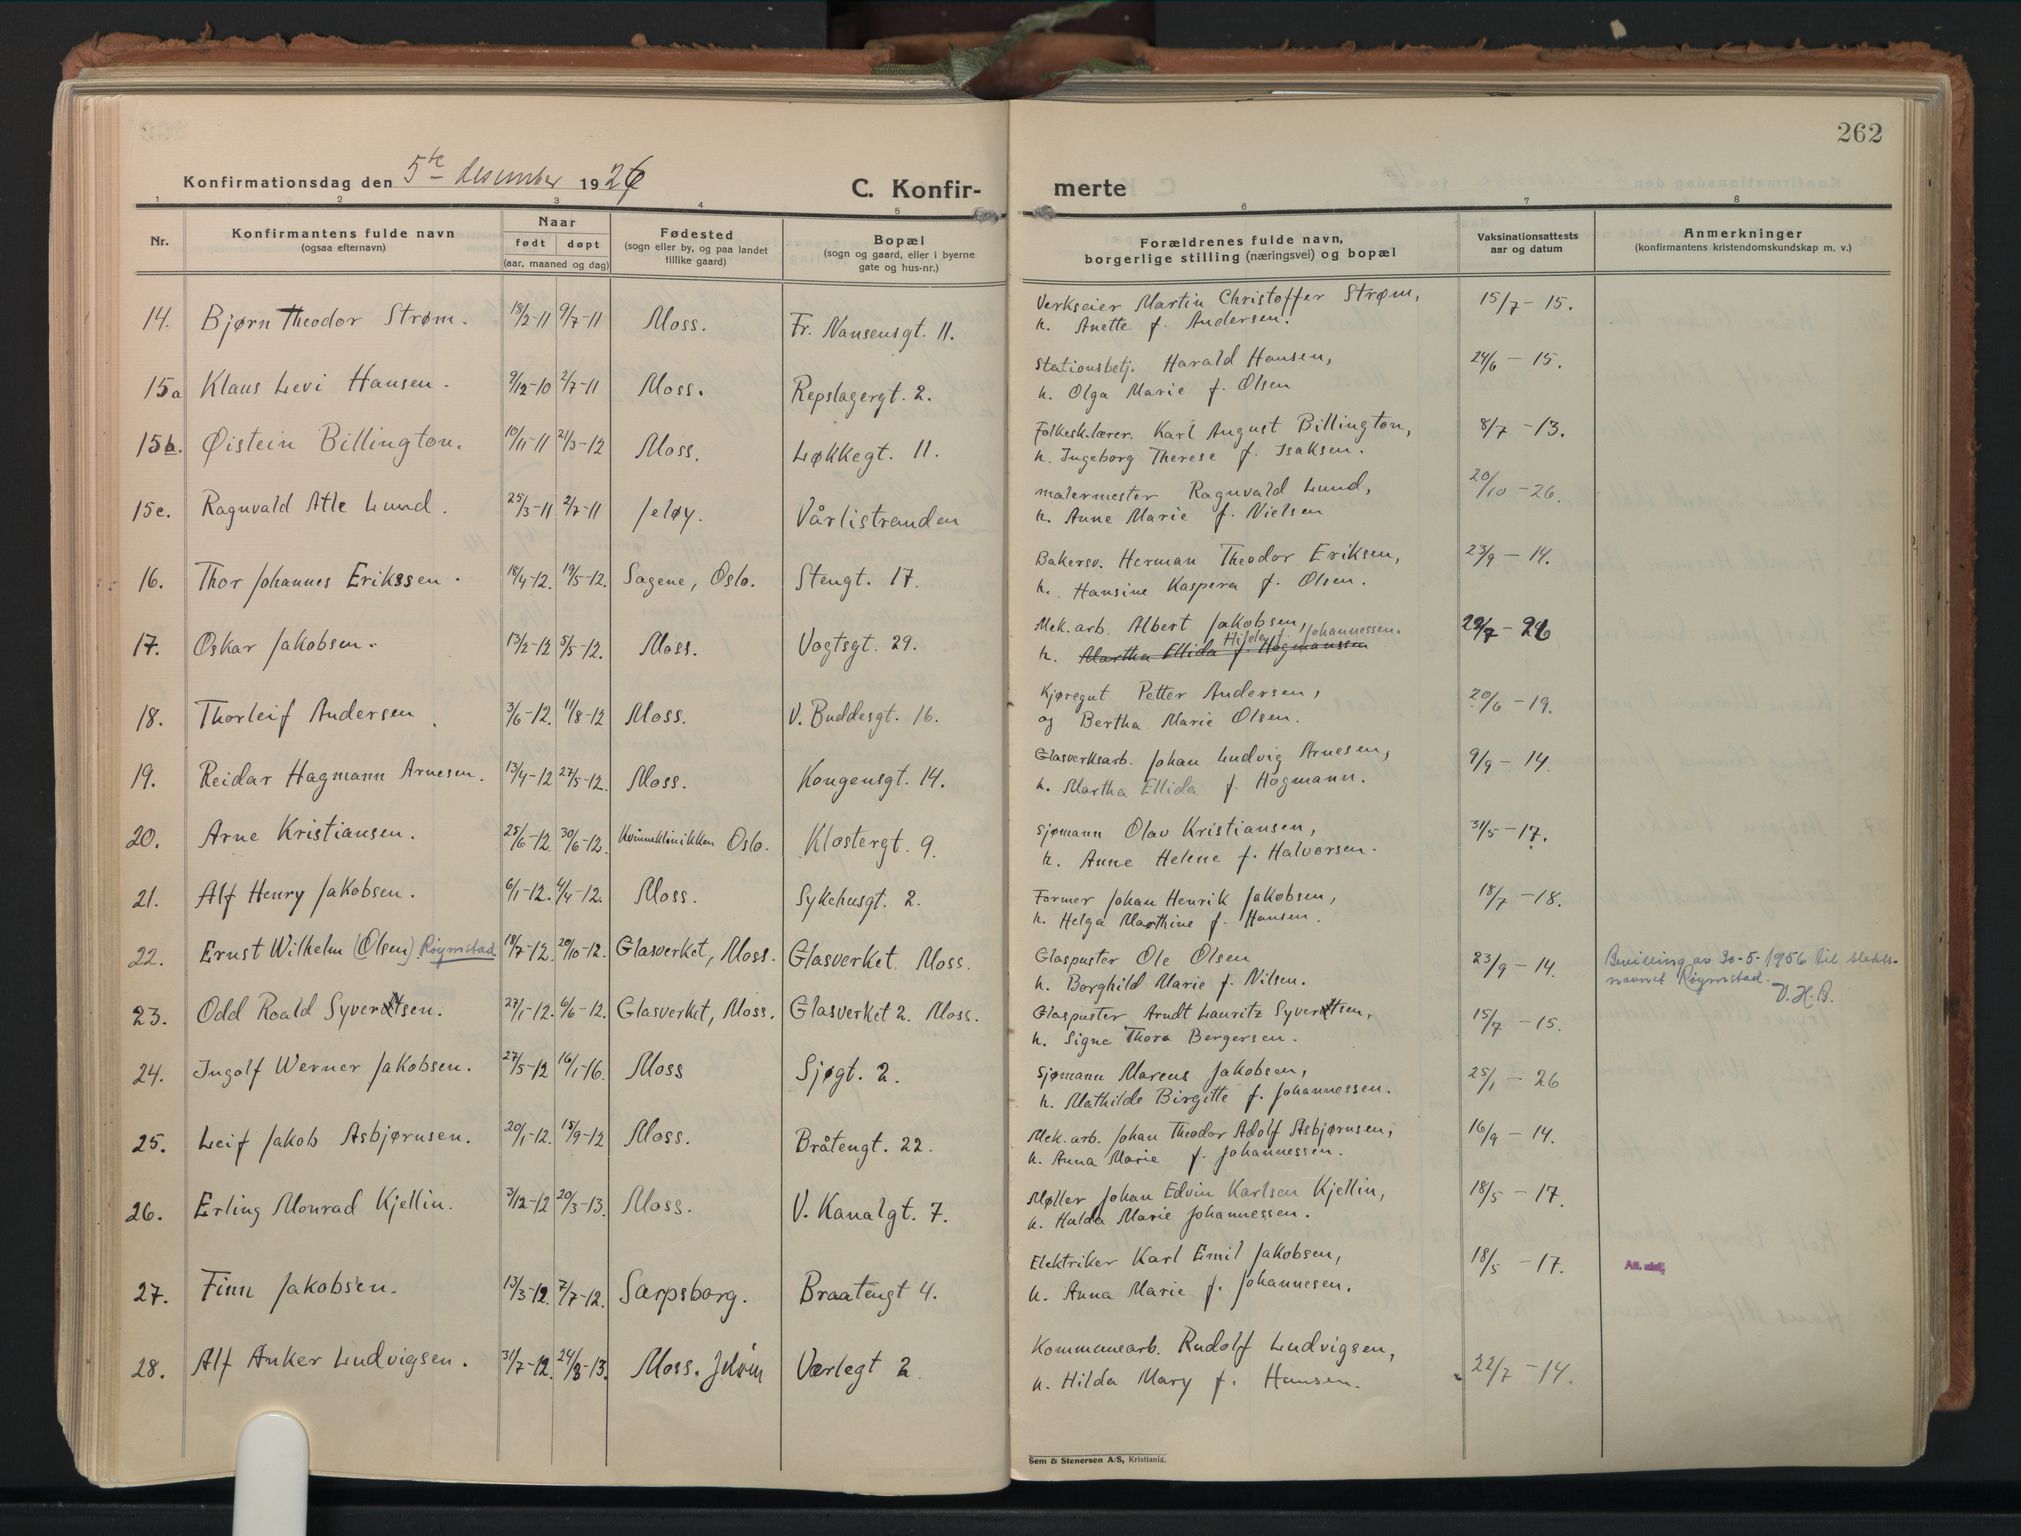 262
Konfirmationsdag den 5te desember 1926
C. Konfir-
merte
1 2 3 4 5 6 7 8
Nr.
Konfirmantens fulde navn
(ogsaa efternavn)
Naar
født døpt
(aar, maaned og dag)
Fødested
(sogn eller by, og paa landet
tillike gaard)
Bopæl
(sogn og gaard, eller i byerne
gate og hus-nr.)
Forældrenes fulde navn,
borgerlige stilling (næringsvei) og bopæl
Vaksinationsattests
aar og datum
Anmerkninger
(konfirmantens kristendomskundskap m. v.)
14. Bjørn Theodor Strøm. 18/2-11 9/7-11 Moss. Fr. Nansensgt. 11. Verkseier Martin Christoffer Strøm, 15/7-15.
h. Anette f. Andersen.
15a Klaus Levi Hansen. 9/12-10 2/7-11 Moss. Repslagergt. 2. Stationsbetj. Harald Hansen, 24/6-15.
h. Olga Marie f. Olsen
15b. Øistein Billington. 10/11-11 24/3-12 Moss. Løkkegt. 11. Folkesk.lærer. Karl August Billington, 8/7-13.
h. Ingeborg Therese f. Isaksen.
15c. Ragnvald Atle Lund. 25/3-11 2/7-11 Jeløy. Vårlistranden malermester Ragnvald Lund, 20/10-26.
h. Anne Marie f. Nielsen
16. Thor Johannes Erikssen. 18/4-12. 19/5-12. Sagene, Oslo. Stengt. 17. Bakersv. Herman Theodor Eriksen, 23/9-14.
h. Hansine Kaspera f. Olsen.
17. Oskar Jakobsen. 13/2-12 5/5-12. Moss. Vogtsgt. 29. Mek. arb. Albert Jakobsen, 29/7-26
Hilda f. Johannessen.
h. Martha Ellida f. Hagmanssen
18. Thorleif Andersen. 3/6-12. 11/8-12 Moss. V. Buddesgt. 16. Kjøregut Petter Andersen, 20/6-19.
og Bertha Marie Olsen.
19. Reidar Hagmann Arnesen. 13/4-12 27/5-12. Moss. Kongensgt. 14. Glasverksarb. Johan Ludvig Arnesen, 9/9-14.
h. Martha Ellida f. Hagmann.
20. Arne Kristiansen. 25/6-12. 30/6-12. Kvinneklinikken Oslo. Klostergt. 9. Sjømann Olav Kristiansen, 31/5-17.
h. Anne Helene f. Halvorsen.
21. Alf Henry Jakobsen. 6/1-12. 4/4-12. Moss. Sykehusgt. 2. Former Johan Henrik Jakobsen, 18/7-18.
h. Helga Marthine f. Hansen.
22. Ernst Wilhelm (Olsen) Røymstad 18/7-12. 20/10-12. Glasverket, Moss. Glasverket. Moss. Glaspuster Ole Olsen 23/9-14. Bevilling av 30-5-1956 til slekts-
h. Borghild Marie f. Nilsen. navnet Røymstad.
V. H. B.
23. Odd Roald Syvertsen. 27/1-12. 6/6-12. Glasverket, Moss. Glasverket 2. Moss. Glaspuster Arndt Lauritz Syvertsen, 15/7-15.
h. Signe Thora Bergersen.
24. Ingolf Werner Jakobsen. 27/5-12 16/1-16. Moss Sjøgt. 2. Sjømann Marcus Jakobsen, 25/1-26
h. Mathilde Birgitte f. Johannessen.
25. Leif Jakob Asbjørnsen. 20/1-12. 15/9-12 Moss. Bråtengt. 22. Mek. arb. Johan Theodor Adolf Asbjørnsen, 16/9-14.
h. Anna Marie f. Johannessen.
26. Erling Monrad Kjellin. 3/12-12 20/3-13. Moss. V. Kanalgt. 7. Møller Johan Edvin Karlsen Kjellin, 18/5-17.
h. Hulda Marie Johannessen.
27. Finn Jakobsen. 13/3-12. 7/7-12. Sarpsborg. Braatengt 4. Elektriker Karl Emil Jakobsen, 18/5-17.
h. Anna Marie f. Johannesen.
28. Alf Anker Ludvigsen. 31/7-12. 24/3-13. Moss. Værlegt 2. Kommunearb. Rudolf Ludvigsen, 22/7-14.
h. Hilda Mary f. Hansen.
Sem & Stenersen A/S, Kristiania.